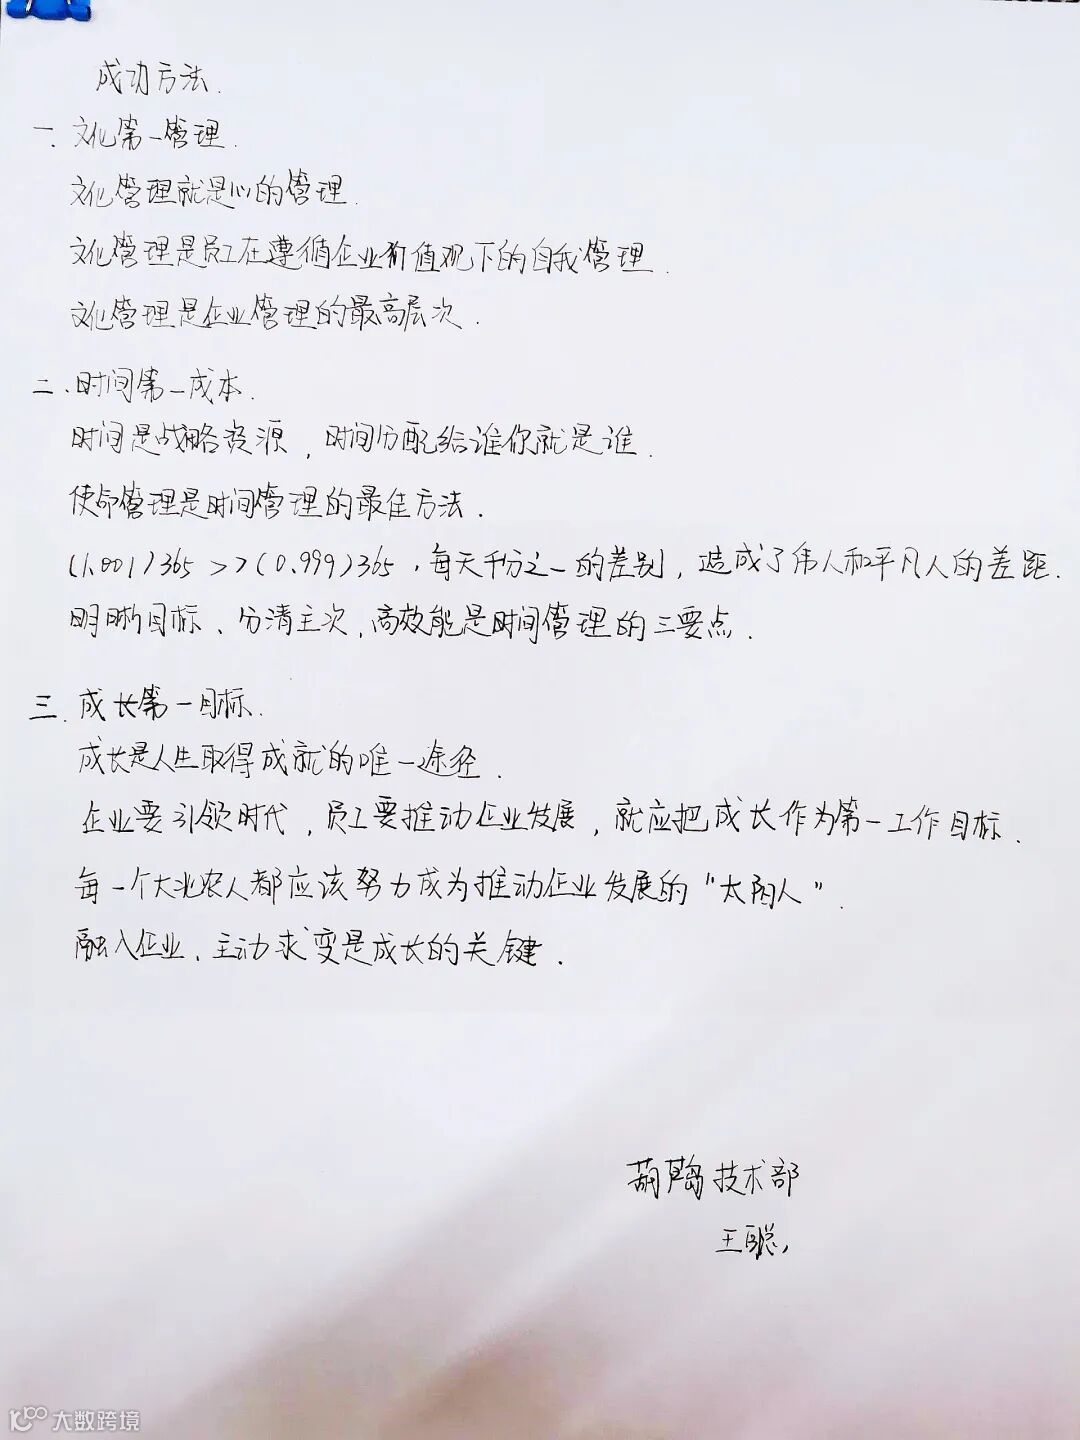 成功方法.
一. 文化第一管理.
文化管理就是心的管理.
文化管理是员工在遵循企业价值观下的自我管理.
文化管理是企业管理的最高层次.
二、时间第一成本.
时间是战略资源，时间分配给谁你就是谁.
使命管理是时间管理的最佳方法.
(1.001)365>>(0.999)365，每天千分之一的差别，造成了伟人和平凡人的差距.
明晰目标、分清主次，高效能是时间管理的三要点.
三. 成长第一目标.
成长是人生取得成就的唯一途径.
企业要引领时代，员工要推动企业发展，就应把成长作为第一工作目标.
每一个大北农人都应该努力成为推动企业发展的“太阳人”.
融入企业、主动求变是成长的关键.
葫芦岛技术部
王聪
大数跨境